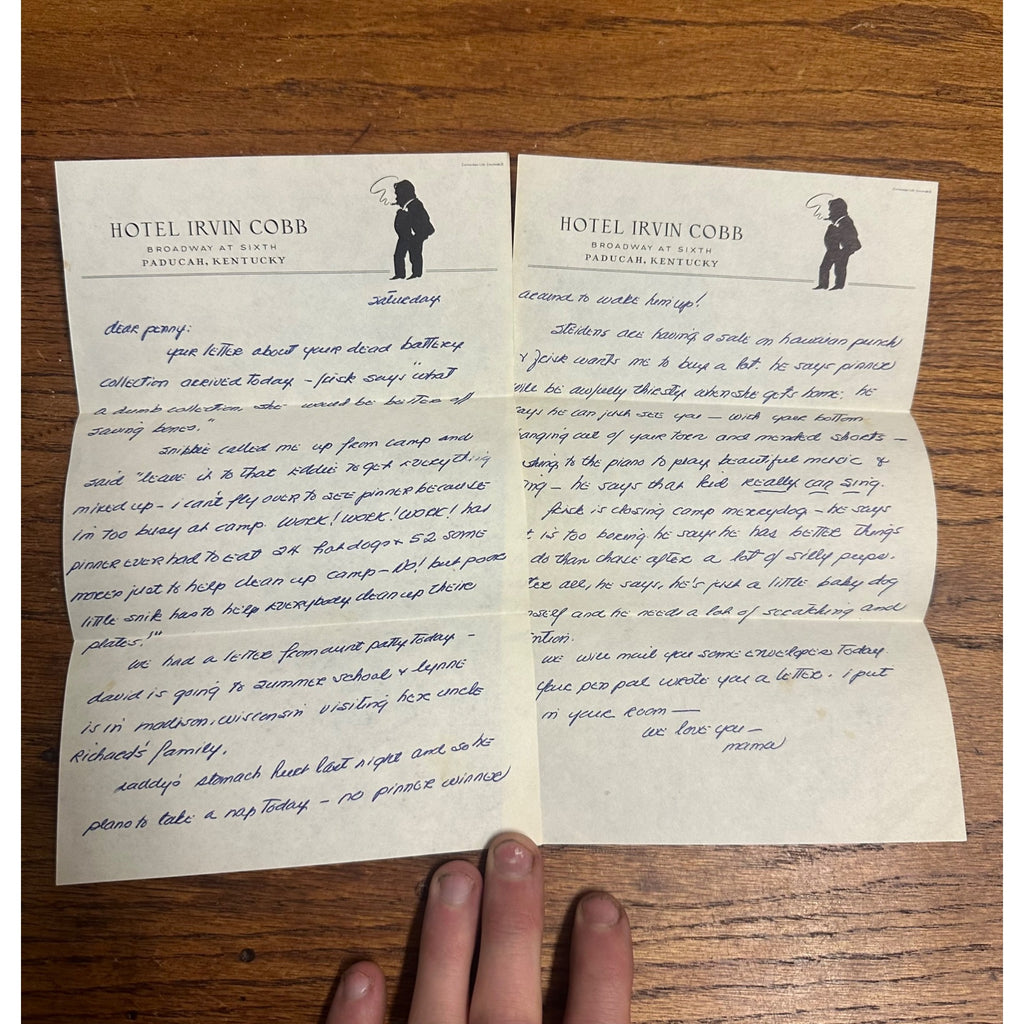 HOTEL IRVIN COBB
BROADWAY AT SIXTH
PADUCAH, KENTUCKY
Saturday
Dear Penny:
Your letter about your dead battery
collection arrived today – Frisk says "what
a dumb collection, she would be better off
saving bones."
Snibbie called me up from camp and
said "leave it to that Eddie to get everything
mixed up – i can't fly over to see pinner because
im too busy at camp. WORK! WORK! WORK! has
pinner ever had to eat 24 hot dogs & 52 some
mores just to help clean up camp – No! but poor
little snik has to help everybody clean up their
plates!"
We had a letter from aunt patty today –
david is going to summer school & lynne
is in madison, wisconsin visiting her uncle
Richard's family.
daddy's stomach hurt last night and so he
plans to take a nap today – no pinner winner
HOTEL IRVIN COBB
BROADWAY AT SIXTH
PADUCAH, KENTUCKY
around to wake him up!
Steidens are having a sale on hawaiian punch
& Frisk wants me to buy a lot. he says pinner
will be awfully thirsty when she gets home. he
says he can just see you – with your bottom
hanging out of your torn and mended shorts –
to the piano to play beautiful music &
– he says that kid really can sing.
Frisk is closing camp merrydog – he says
it is too boring he says he has better things
do than chase after a lot of silly pups.
after all, he says, he's just a little baby dog
himself and he need a lot of scratching and
attention.
We will mail you some envelopes today.
Your pen pal wrote you a letter. i put
in your room —
We love you –
mama